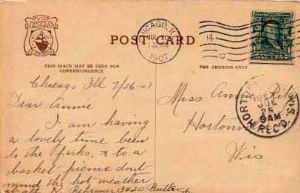 POST CARD
THIS SPACE MAY BE USED FOR CORRESPONDENCE
FOR ADDRESS ONLY
CHICAGO, ILL.
1907
14
Chicago Ill 7/26-07
Dear Annie
I am having
a lovely time been
to the Parks, & to a
basket picnic dont
mind the hot weather
Miss
Hortonville
Wis
9 AM
REC'D.